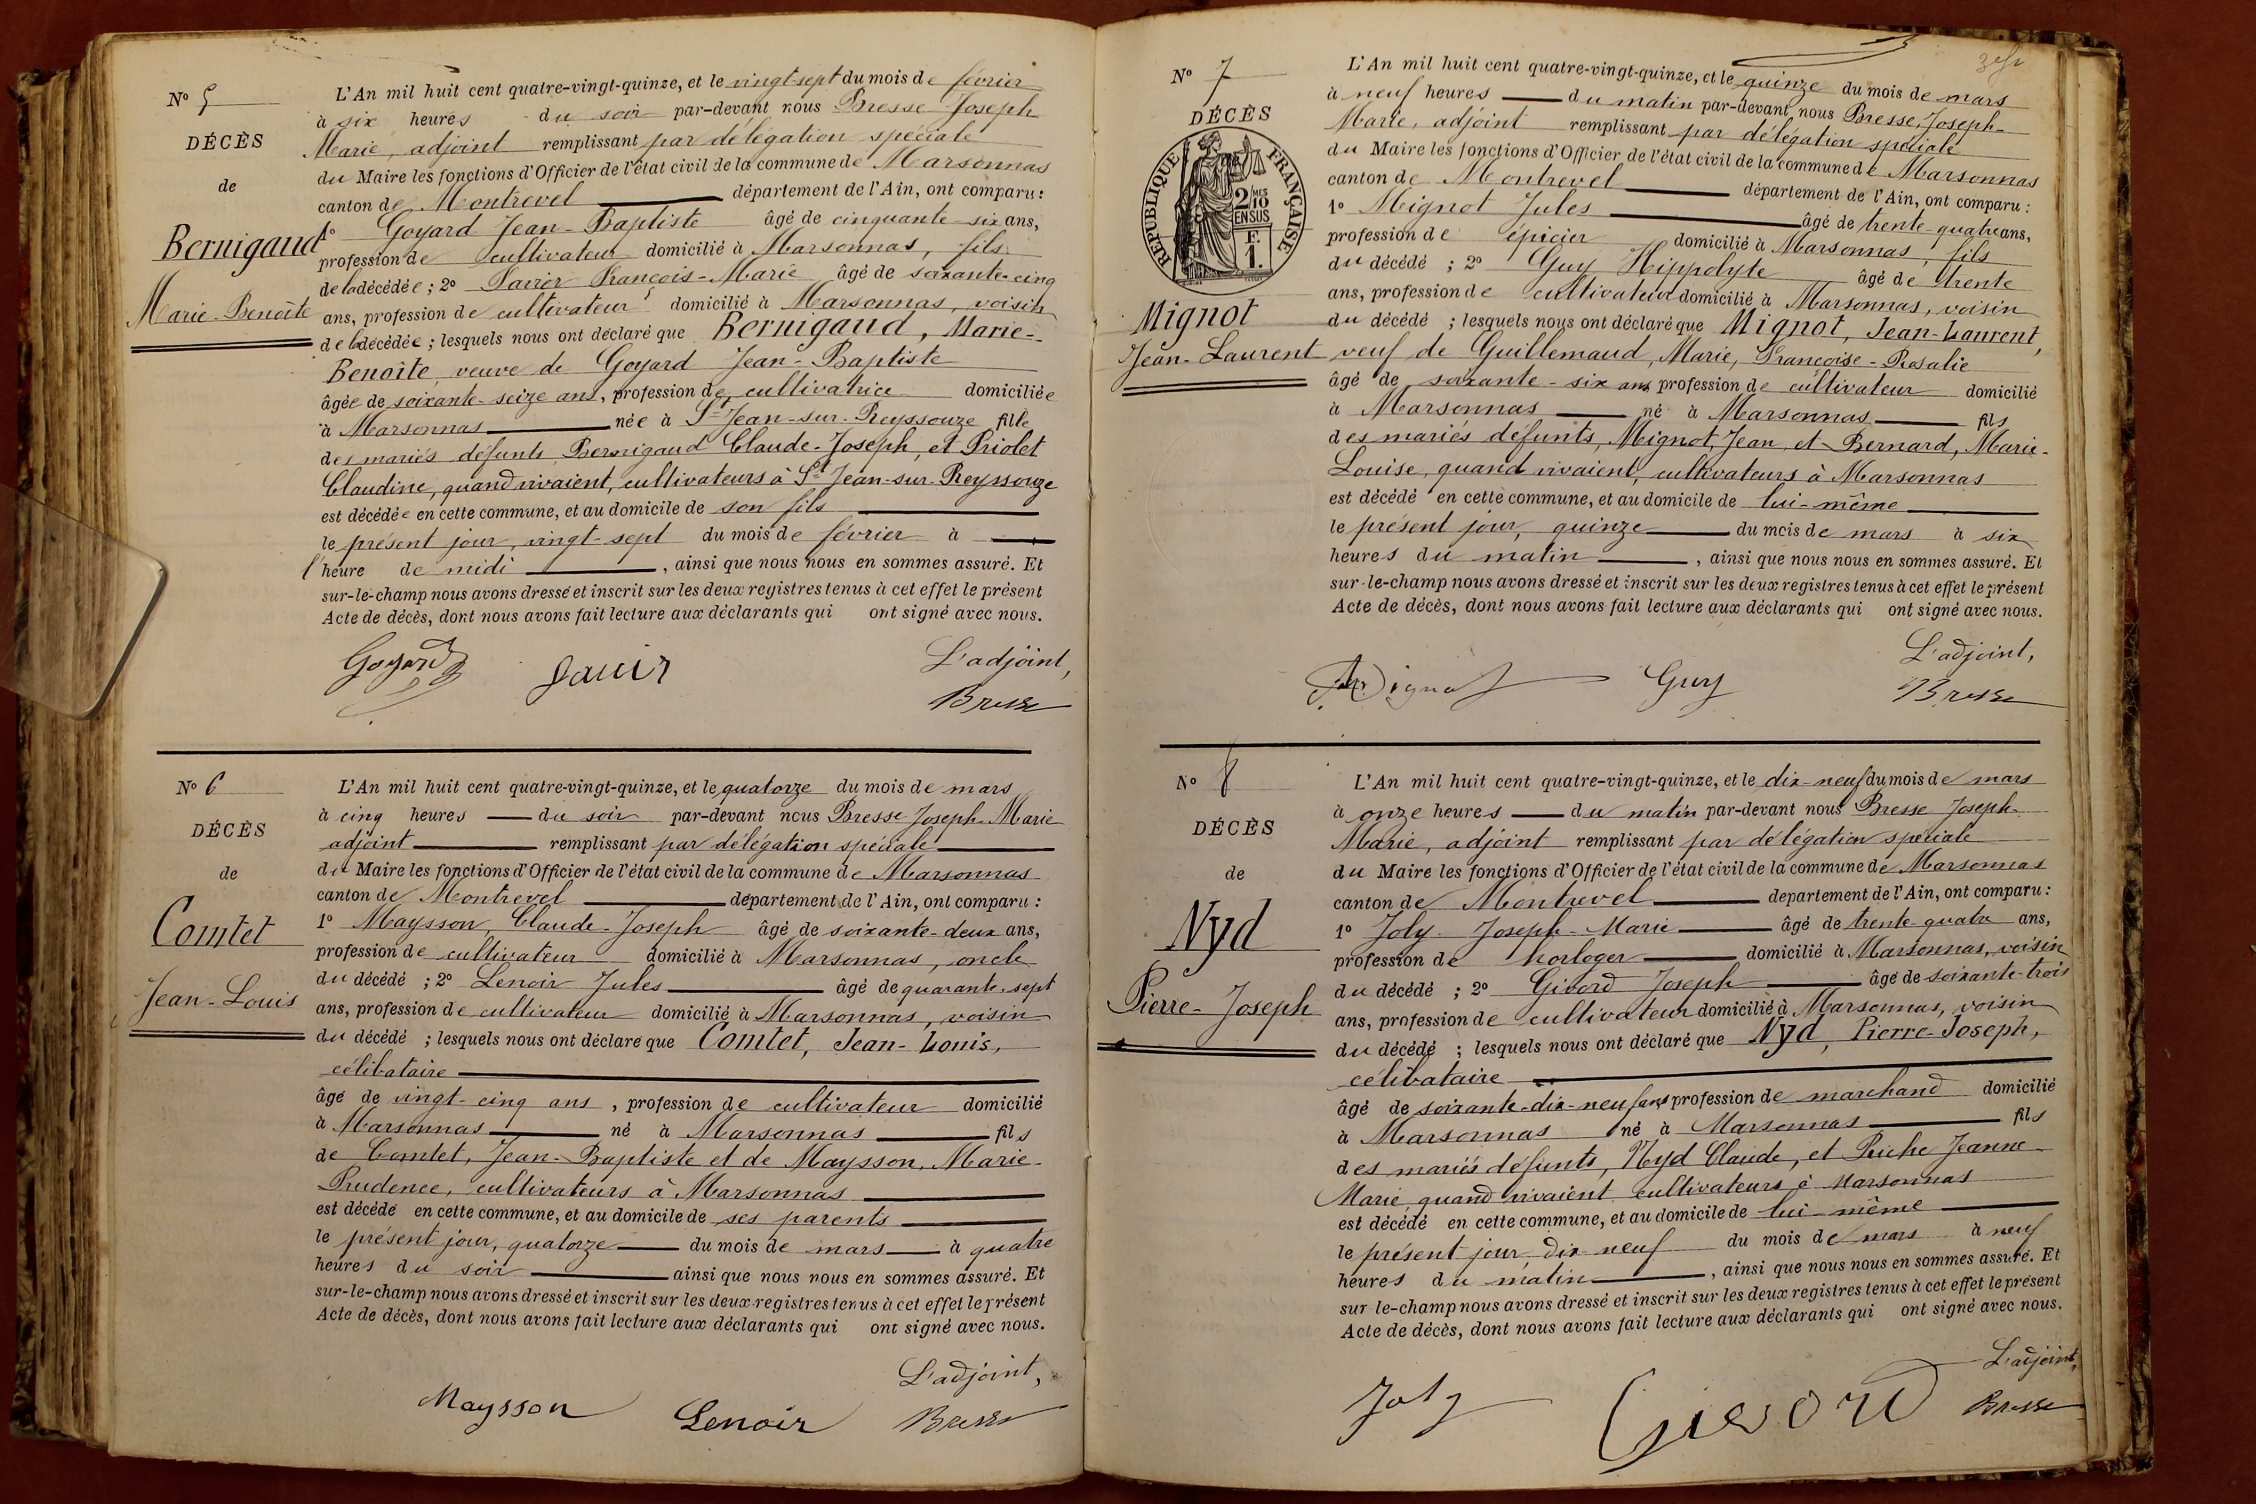 Nº 5
DÉCÈS
de
Bernigaud
Marie-Benoîte
L'An mil huit cent quatre-vingt-quinze, et le vingt-sept du mois de février
à six heures du soir par-devant nous Bresse Joseph
Marie, adjoint remplissant par délégation spéciale
du Maire les fonctions d'Officier de l'état civil de la commune de Marsonnas
canton de Montrevel département de l'Ain, ont comparu :
1º Goyard Jean-Baptiste âgé de cinquante-six ans,
profession de cultivateur domicilié à Marsonnas, fils
de la décédée ; 2º François-Marie âgé de soixante-cinq
ans, profession de cultivateur domicilié à Marsonnas, voisin
de la décédée ; lesquels nous ont déclaré que Bernigaud, Marie-
Benoîte, veuve de Goyard Jean-Baptiste
âgée de soixante-seize ans, profession de cultivatrice domiciliée
à Marsonnas née à St Jean-sur-Reyssouze fille
des mariés défunts Bernigaud Claude-Joseph, et Priolet
Claudine, quand vivaient, cultivateurs à St Jean-sur-Reyssouze
est décédée en cette commune, et au domicile de son fils
le présent jour, vingt-sept du mois de février à
l'heure de midi, ainsi que nous nous en sommes assuré. Et
sur-le-champ nous avons dressé et inscrit sur les deux registres tenus à cet effet le présent
Acte de décès, dont nous avons fait lecture aux déclarants qui ont signé avec nous.
L'adjoint,
Goyard
Bresse
Nº 6
DÉCÈS
de
Comtet
Jean-Louis
L'An mil huit cent quatre-vingt-quinze, et le quatorze du mois de mars
à cinq heures du soir par-devant nous Bresse Joseph-Marie
adjoint remplissant par délégation spéciale
du Maire les fonctions d'Officier de l'état civil de la commune de Marsonnas
canton de Montrevel département de l'Ain, ont comparu :
1º Maysson, Claude-Joseph âgé de soixante-deux ans,
profession de cultivateur domicilié à Marsonnas, oncle
du décédé ; 2º Lenoir Jules âgé de quarante-sept
ans, profession de cultivateur domicilié à Marsonnas, voisin
du décédé ; lesquels nous ont déclaré que Comtet, Jean-Louis,
célibataire
âgé de vingt-cinq ans, profession de cultivateur domicilié
à Marsonnas né à Marsonnas fils
de Comtet, Jean-Baptiste et de Maysson, Marie-
Prudence, cultivateurs à Marsonnas
est décédé en cette commune, et au domicile de ses parents
le présent jour, quatorze du mois de mars à quatre
heures du soir ainsi que nous nous en sommes assuré. Et
sur-le-champ nous avons dressé et inscrit sur les deux registres tenus à cet effet le présent
Acte de décès, dont nous avons fait lecture aux déclarants qui ont signé avec nous.
L'adjoint,
Maysson Lenoir Bresse
Nº 7
DÉCÈS
RÉPUBLIQUE FRANÇAISE
2 MES
10
EN SUS
F.
1.
Mignot
Jean-Laurent
L'An mil huit cent quatre-vingt-quinze, et le quinze du mois de mars
à neuf heures du matin par-devant nous Bresse, Joseph-
Marie, adjoint remplissant par délégation spéciale
du Maire les fonctions d'Officier de l'état civil de la commune de Marsonnas
canton de Montrevel département de l'Ain, ont comparu :
1º Mignot Jules âgé de trente-quatre ans,
profession de épicier domicilié à Marsonnas, fils
du décédé ; 2º Guy Hippolyte âgé de trente
ans, profession de cultivateur domicilié à Marsonnas, voisin
du décédé ; lesquels nous ont déclaré que Mignot, Jean-Laurent,
veuf de Guillemaud, Marie, Françoise-Rosalie
âgé de soixante-six ans, profession de cultivateur domicilié
à Marsonnas né à Marsonnas fils
des mariés défunts, Mignot, Jean, et Bernard, Marie-
Louise, quand vivaient, cultivateurs à Marsonnas
est décédé en cette commune, et au domicile de lui-même
le présent jour, quinze du mois de mars à six
heures du matin, ainsi que nous nous en sommes assuré. Et
sur-le-champ nous avons dressé et inscrit sur les deux registres tenus à cet effet le présent
Acte de décès, dont nous avons fait lecture aux déclarants qui ont signé avec nous.
L'adjoint,
Mignot Guy Bresse
Nº 8
DÉCÈS
de
Nyd
Pierre-Joseph
L'An mil huit cent quatre-vingt-quinze, et le dix-neuf du mois de mars
à onze heures du matin par-devant nous Bresse Joseph-
Marie, adjoint remplissant par délégation spéciale
du Maire les fonctions d'Officier de l'état civil de la commune de Marsonnas
canton de Montrevel département de l'Ain, ont comparu :
1º Joly Joseph-Marie âgé de trente-quatre ans,
profession de horloger domicilié à Marsonnas, voisin
du décédé ; 2º Givord Joseph âgé de soixante-trois
ans, profession de cultivateur domicilié à Marsonnas, voisin
du décédé ; lesquels nous ont déclaré que Nyd, Pierre-Joseph,
célibataire
âgé de soixante-dix-neuf ans, profession de marchand domicilié
à Marsonnas né à Marsonnas fils
des mariés défunts, Nyd Claude, et Jeanne-
Marie, quand vivaient cultivateurs à Marsonnas
est décédé en cette commune, et au domicile de lui-même
le présent jour, dix-neuf du mois de mars à neuf
heures du matin, ainsi que nous nous en sommes assuré. Et
sur-le-champ nous avons dressé et inscrit sur les deux registres tenus à cet effet le présent
Acte de décès, dont nous avons fait lecture aux déclarants qui ont signé avec nous.
L'adjoint,
Joly Givord Bresse